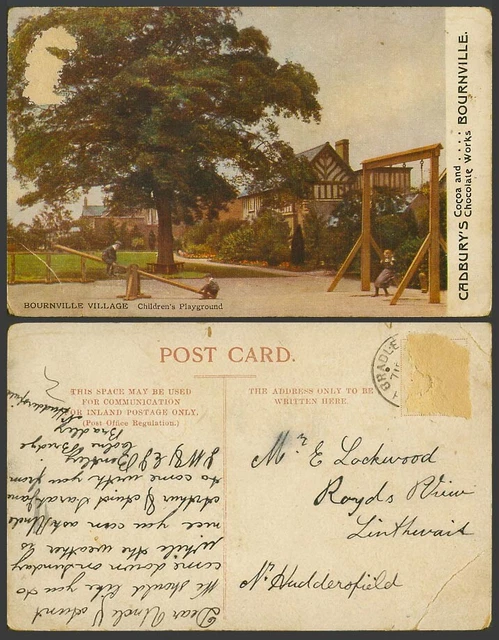 BOURNVILLE VILLAGE Children's Playground
CADBURY'S Cocoa and .... Chocolate Works BOURNVILLE.
POST CARD.
THIS SPACE MAY BE USED
FOR COMMUNICATION
OR INLAND POSTAGE ONLY.
(Post Office Regulation.)
THE ADDRESS ONLY TO BE
WRITTEN HERE.
BRADLE
Mr E Lockwood
Royds View
Linthwait
Nr Huddersfield
Dear Uncle & Aunt
We should like you to
come down on Sunday
while the weather is
nice you can ask Uncle
Arthur & Aunt Sarahann
to come with you from
J W & E J B
Bradley
Huddersfield